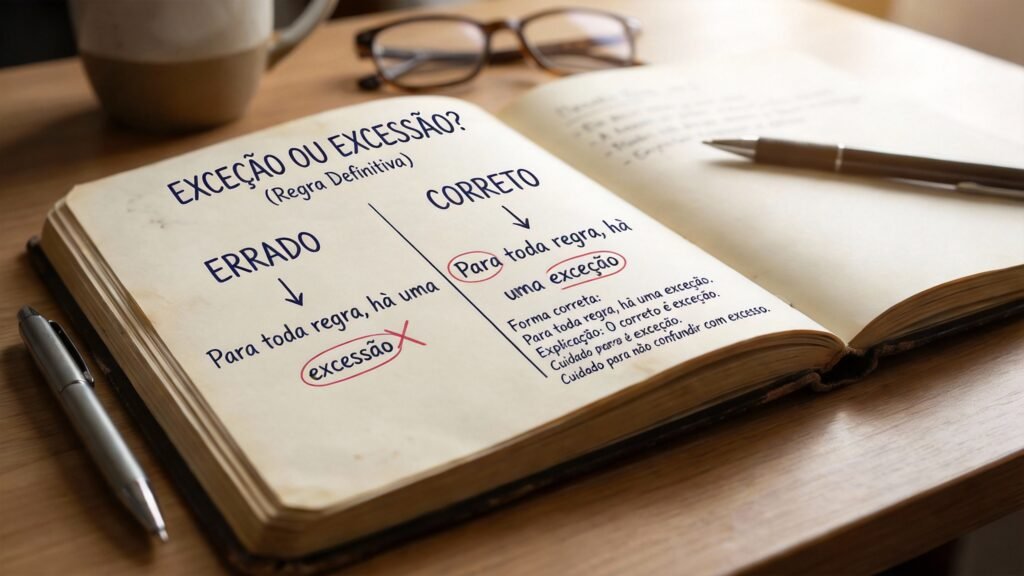 EXCEÇÃO OU EXCESSÃO?
(Regra Definitiva)
ERRADO
Para toda regra, hà uma
excessão
CORRETO
Para toda regra, hà
uma exceção
Forma correta:
Para toda regra, hà uma exceção.
Explicação: O correto é exceção.
Cuidado é exceção.
Cuidado para não confundir com excesso.